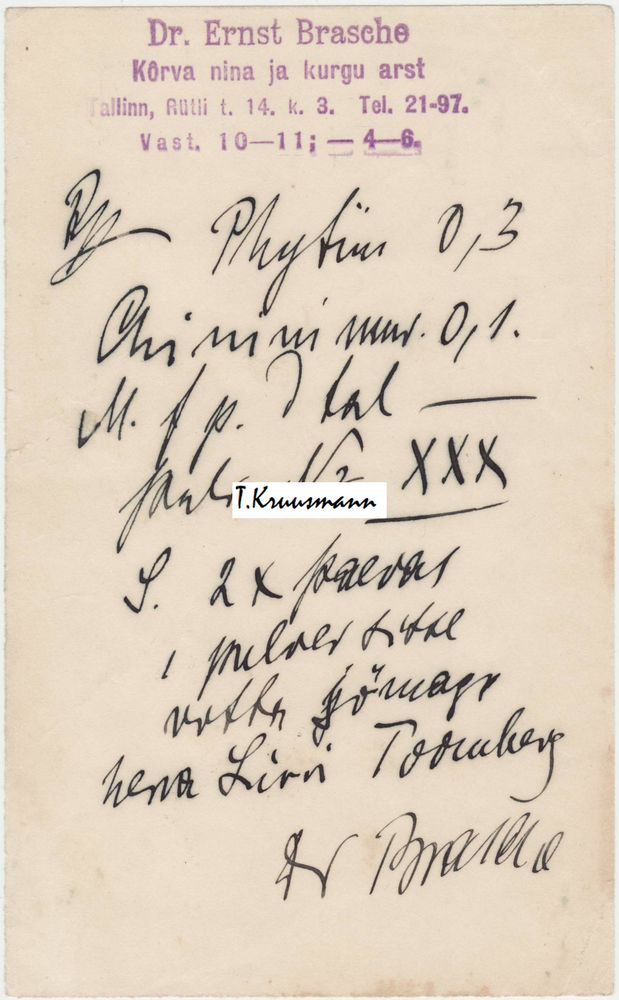 Dr. Ernst Brasche
Kõrva nina ja kurgu arst
Tallinn, Rütli t. 14. k. 3. Tel. 21-97.
Vast. 10—11; — 4—6.
Rp Phytini 0,3
Chinini mur. 0,1.
M. f p. D tal
Nr XXX
T.Kruusmann
S. 2 x päevas
1 pulver sisse
võtta
Toomberg
Dr Brasche